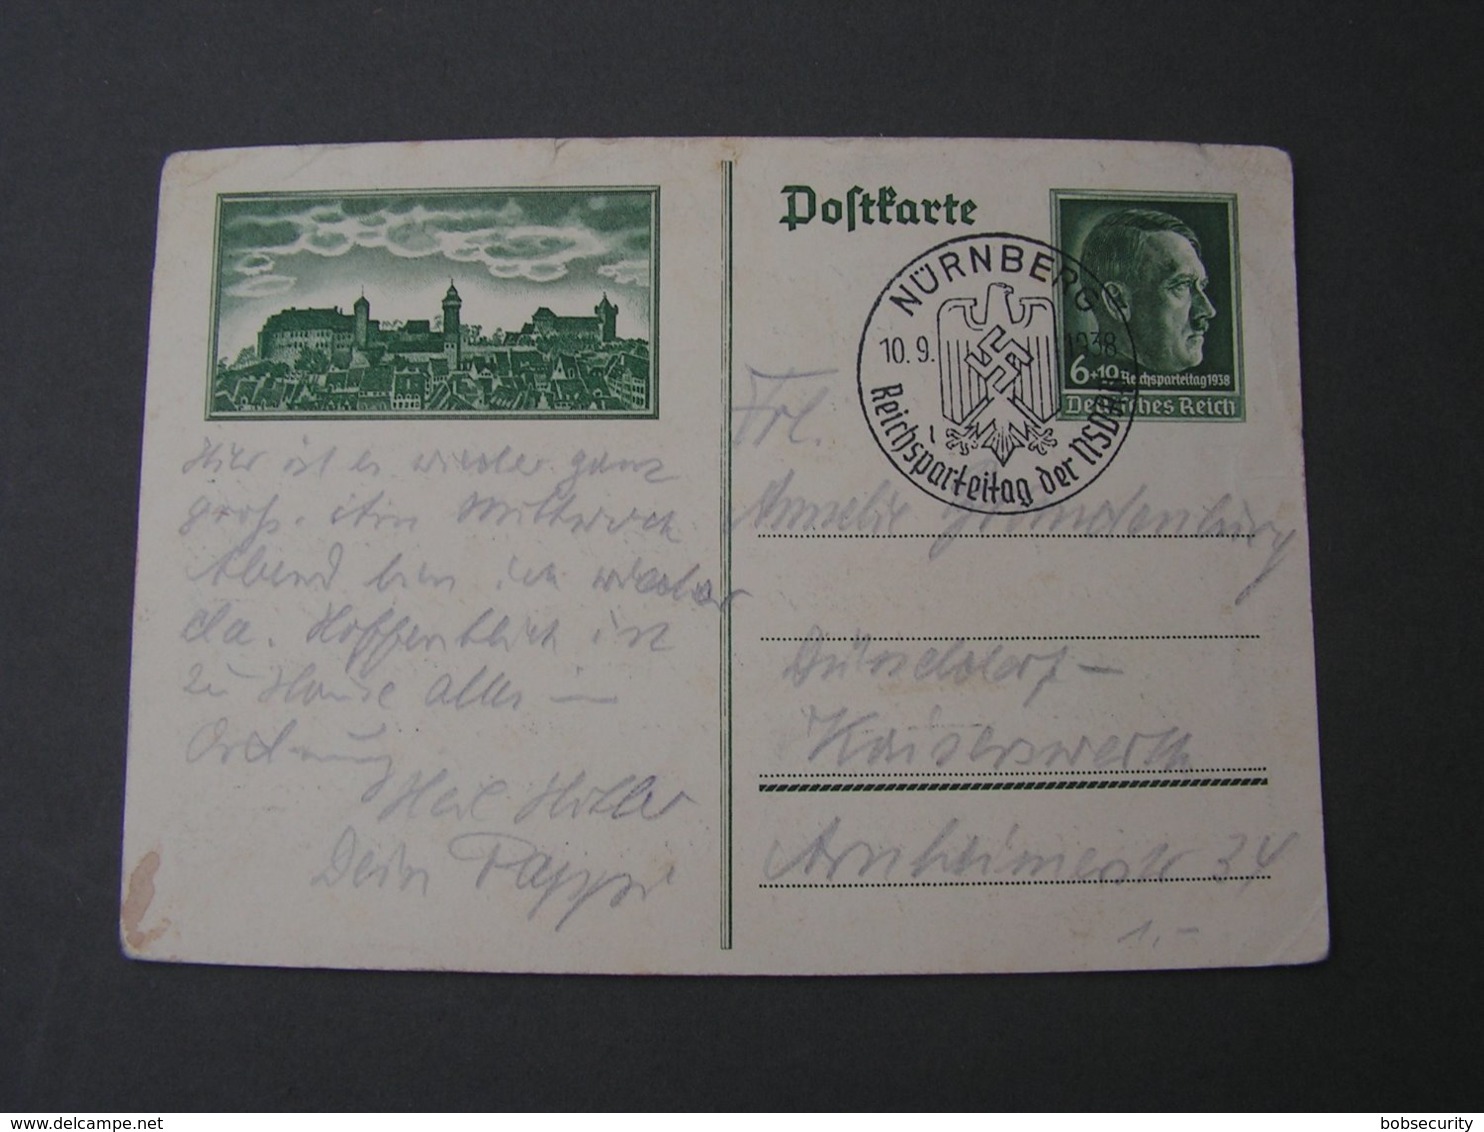 Postkarte
NÜRNBERG
10. 9. 1938
Reichsparteitag der NSDAP
6+10 Reichsparteitag 1938
Deutsches Reich
Hier ist es wieder ganz
groß. Am Mittwoch
Abend bin ich wieder
da. Hoffentlich ist
zu Hause alles in
Ordnung
Heil Hitler
Dein Pappi
Frl.
Annelie
Düsseldorf-
Kaiserswerth
Arnheimerstr 34
1,-
bobsecurity